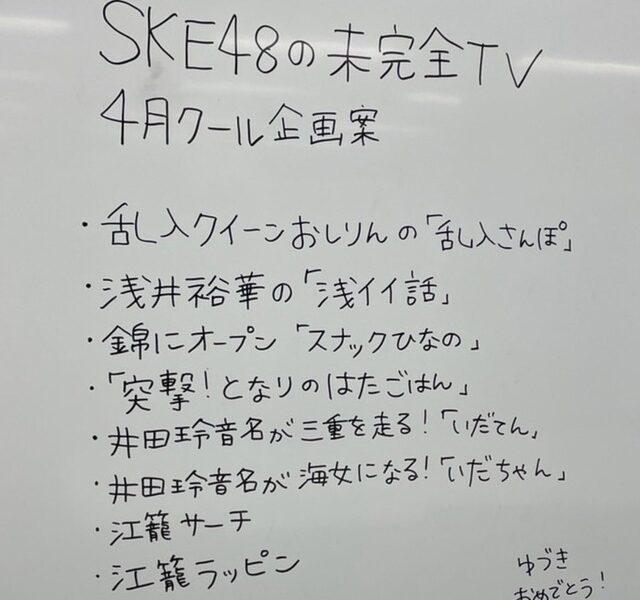 SKE48の未完全TV
4月クール企画案
・乱入クイーンおしりんの「乱入さんぽ」
・浅井裕華の「浅イイ話」
・錦にオープン「スナックひなの」
・「突撃!となりのはたごはん」
・井田玲音名が三重を走る!「いだてん」
・井田玲音名が海女になる!「いだちゃん」
・江籠サーチ
・江籠ラッピン
ゆづき
おめでとう!